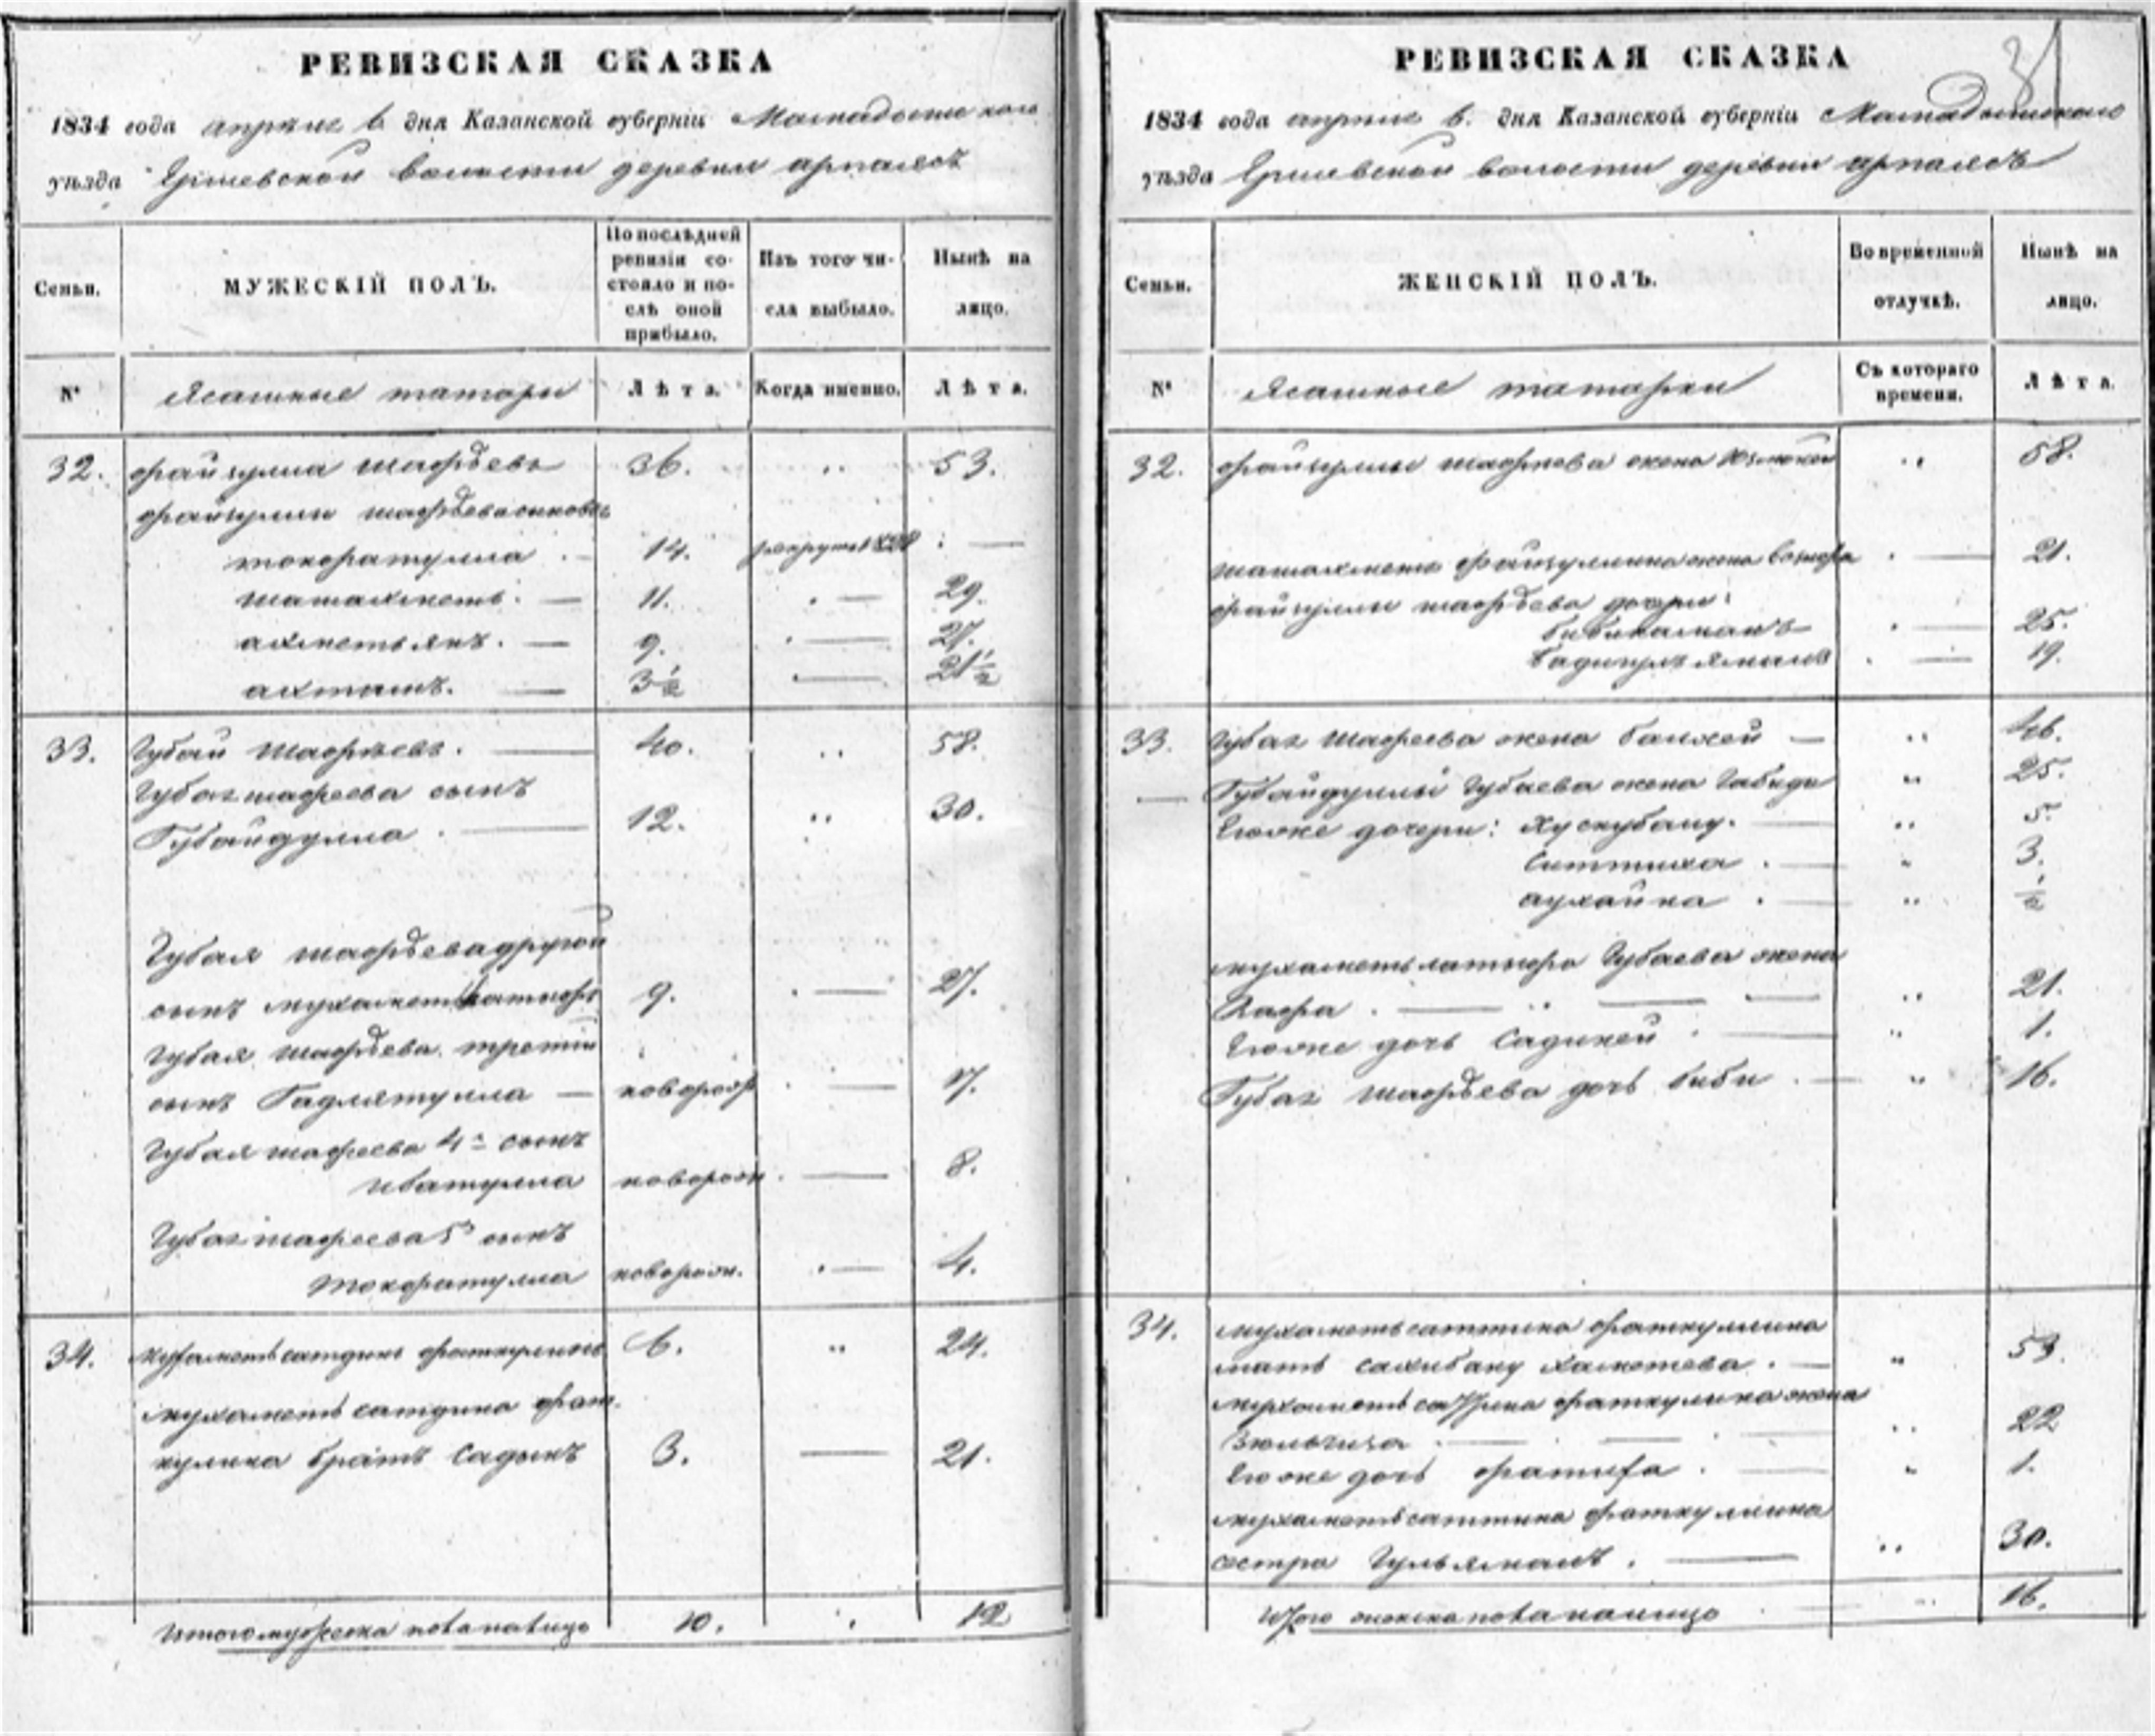 РЕВИЗСКАЯ СКАЗКА
1834 года апреля 6. дня Казанской губерніи Мамадышскаго
уѣзда волости деревни арпаязъ
Семьи. МУЖЕСКІЙ ПОЛЪ. По послѣдней ревизіи состояло и послѣ оной прибыло. Изъ того числа выбыло. Нынѣ на лицо.
№ Ясашные татары Лѣта. Когда именно. Лѣта.
32. файзулла шафѣевъ 36. 53.
файзуллы шафѣева сыновья
тохфатулла 14. рекрутъ 1828
шашахметь. 11. 29.
ахметьянъ. 9. 27.
ахтямъ. 3½ 21½
33. Губай шафѣевъ. 40. 58.
Губая шафеева сынъ
Губайдулла 12. 30.
Губая шафѣева другой
сынъ 9. 27.
Губая шафѣева третій
сынъ Гадлятулла новорож 17.
Губая шафеева 4й сынъ
ибатулла новорож. 8.
Губая шафеева 5й сынъ
тохфатулла новорож. 4.
34. мухаметь сатдинъ фаткулинъ 6. 24.
мухаметь сатдина фат-
кулина братъ Садыкъ 3. 21.
итого мужеска пола на лицо 10. 12
РЕВИЗСКАЯ СКАЗКА
31
1834 года апреля 6. дня Казанской губерніи Мамадышскаго
уѣзда волости деревни арпаязъ
Семьи. ЖЕНСКІЙ ПОЛЪ. Во временной отлучкѣ. Нынѣ на лицо.
№ Ясашные татарки Съ котораго времени. Лѣта.
32. файзуллы шафиева жена 58.
шашахметя файзуллина жена 21.
файзуллы шафѣева дочери:
бибикамалъ 25.
бадигулъ ямалъ 19.
33. Губая шафеева жена 46.
Губайдуллы Губаева жена Габида 25.
Ево же дочери: Хуснубану. 5.
Ситтиха 3.
аухайна ½
Губаева жена
Зафа 21.
Ево же дочь Садикей 1.
Губая шафѣева дочь биби 16.
34. мухаметь саттина фаткуллина
мать сахибану хаметева. 53.
мухаметь саттина фаткулина жена
Зюльбиза 22
Ево же дочь фатиха 1.
мухаметь саттина фаткуллина
сестра Гульямалъ. 30.
Итого женска пола на лицо 16.